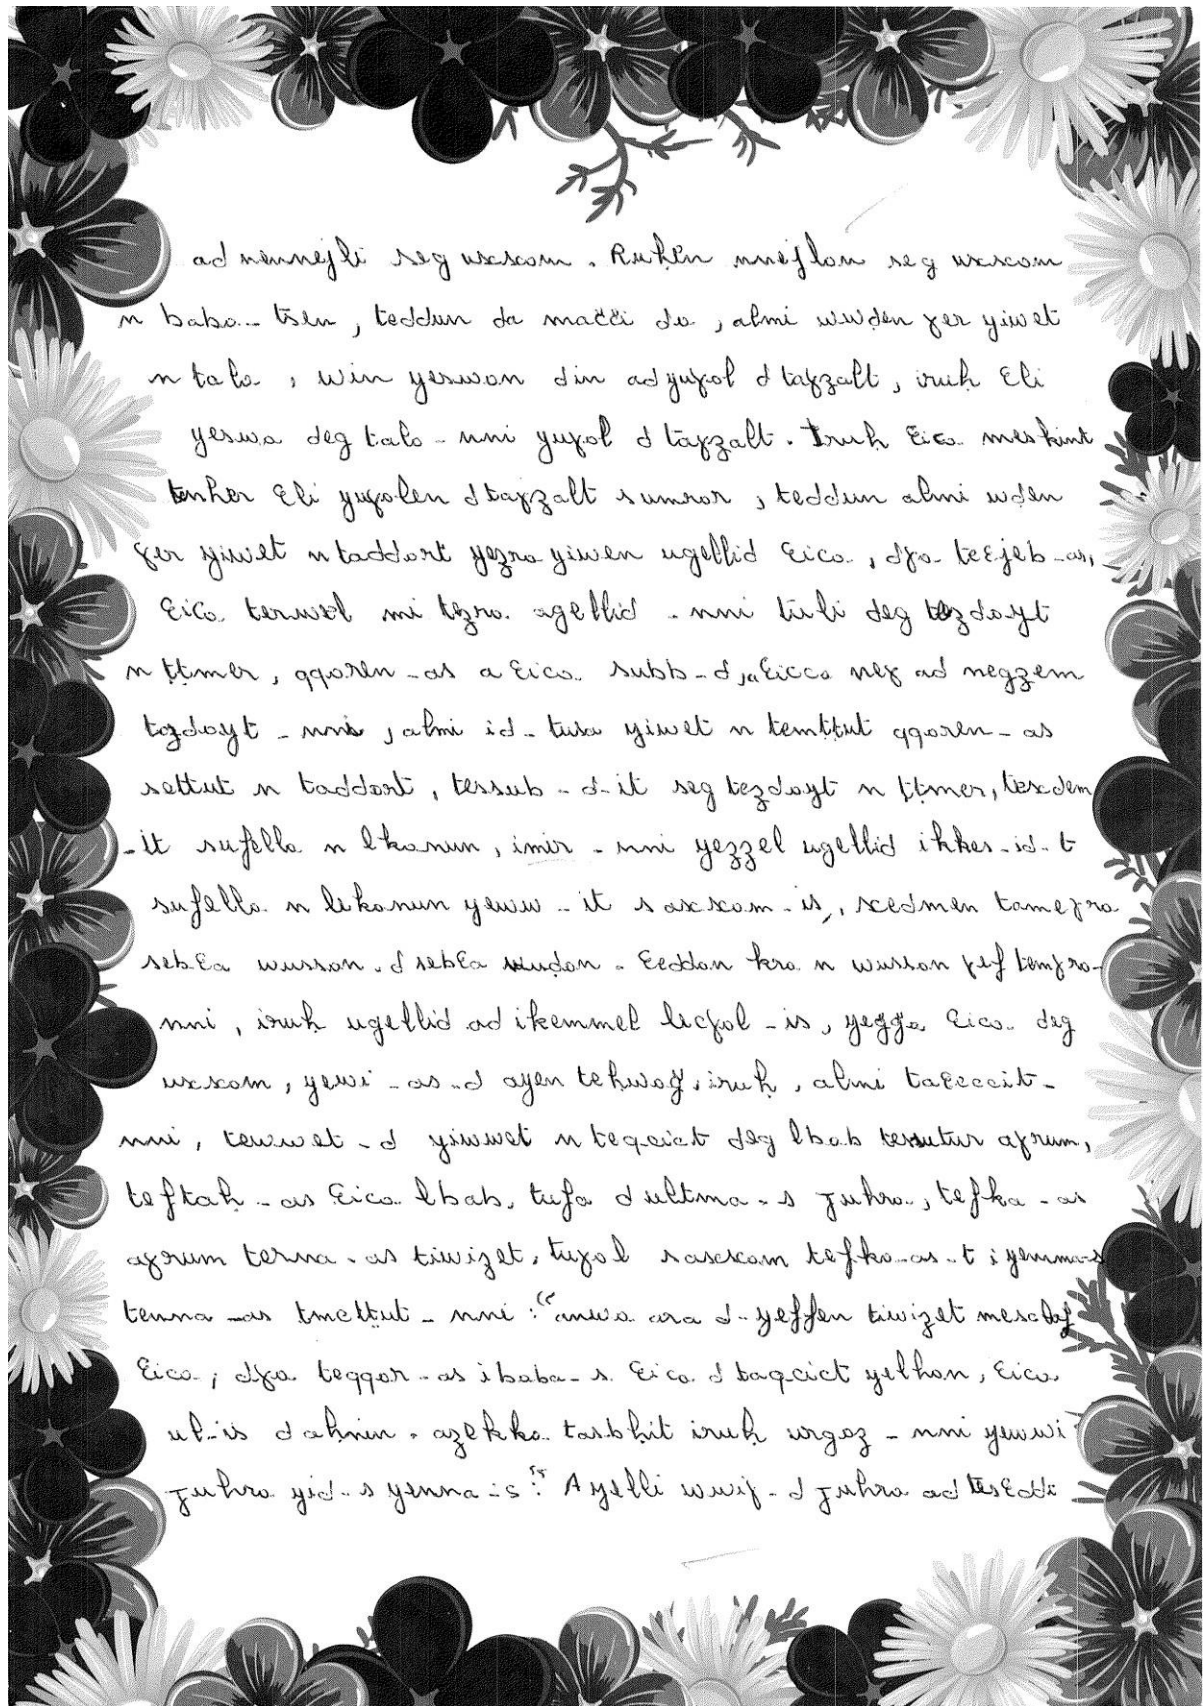 ad nennejli seg uxxam. Ruḥen nnejlan seg uxxam
n baba-tsen, teddun da mačči da, almi wwḍen ɣer yiwet
n tala, win yeswan din ad yuɣal d taɣzalt, iruḥ Ɛli
yeswa deg tala-nni yuɣal d taɣzalt. Truḥ Ɛica meskint
tenher Ɛli yuɣalen d taɣzalt s umrar, teddun almi wḍen
ɣer yiwet n taddart yezra yiwen ugellid Ɛica, dɣa teɛjeb-as,
Ɛica terwel mi tezra agellid-nni tuli deg tezdayt
n ttmer, qqaren-as a Ɛica subb-d, a Ɛicca neɣ ad negzem
tazdayt-nni, almi id-tusa yiwet n temṭṭut qqaren-as
settut n taddart, tessub-d-it seg tezdayt n ttmer, texdem
-it sufella n lkanun, imir-nni yezzel ugellid ikkes-id-t
sufella n lkanun yeww-it s axxam-is, xedmen tameɣra
sebɛa wussan d sebɛa wuḍan. Ɛeddan kra n wussan ɣef temɣra-
nni, iruḥ ugellid ad ikemmel lecɣal-is, yeǧǧa Ɛica deg
uxxam, yewi-as-d ayen teḥwaǧ, iruḥ, almi taɛeccit-
nni, tewwet-d yiwwet n teqcict deg lbab tessutur aɣrum,
teftaḥ-as Ɛica lbab, tufa d ultma-s Juhra, tefka-as
aɣrum terna-as tiwizet, tuɣal s axxam tefka-as-t i yemma-s
tenna-as tmeṭṭut-nni : "anwa ara d-yeffen tiwizet mesclaf
Ɛica, dɣa teqqar-as i baba-s Ɛica d taqcict yelhan, Ɛica
ul-is d aḥnin. azekka tasbḥit iruḥ urgaz-nni yewwi
Juhra yid-s yenna-s : "A yelli wwiɣ-d Juhra ad tesɛeddi